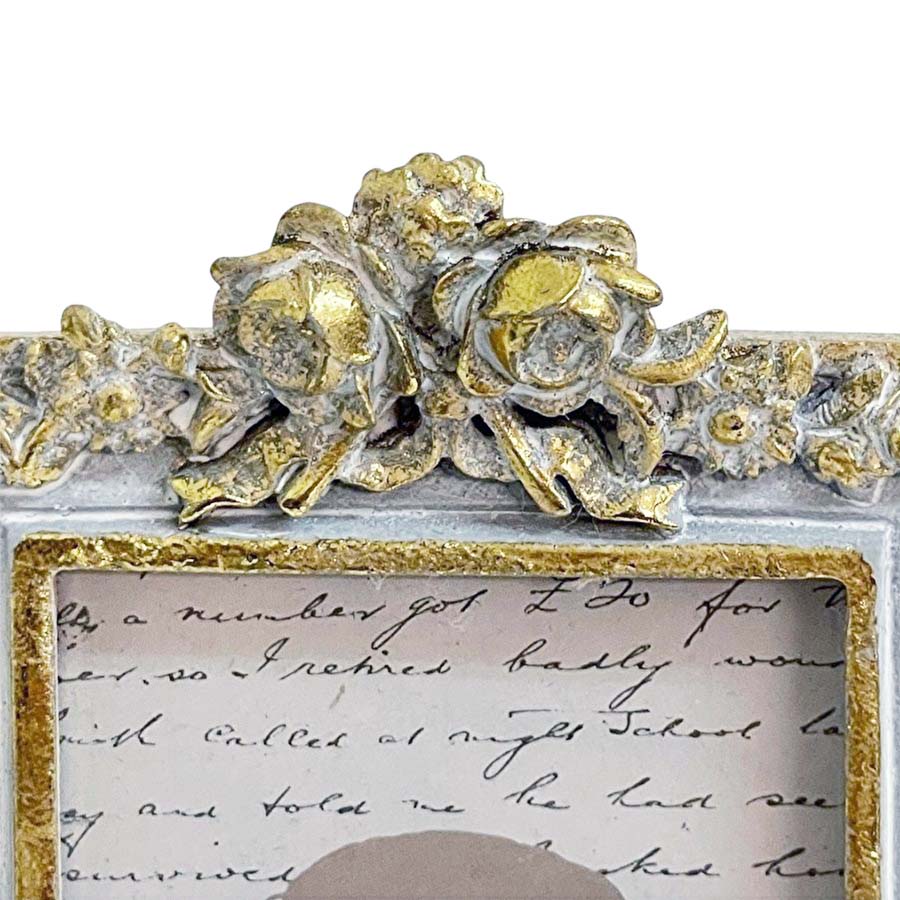 a number got £20 for
so I retired badly
called at night School
and told me he had see
survived asked